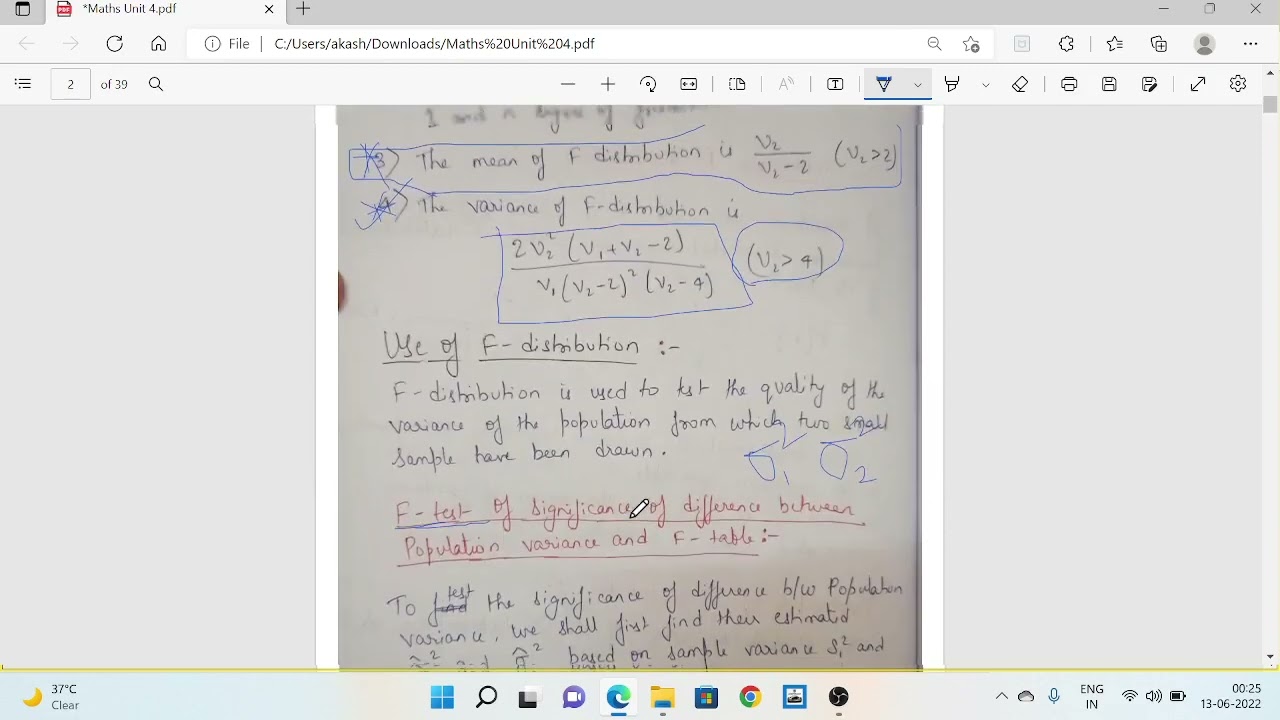 *Maths Unit 4.pdf
File C:/Users/akash/Downloads/Maths%20Unit%204.pdf
2 of 39
1 and n degree of
3) The mean of F distribution is ν2/(ν2-2) (ν2>2)
4) The variance of F-distribution is
2ν2² (ν1+ν2-2)
ν1(ν2-2)² (ν2-4) (ν2>4)
Use of F-distribution :-
F-distribution is used to test the quality of the
variance of the population from which two small
sample have been drawn.
σ1² σ2²
F-test of significance of difference between
Population variance and F-table:-
To test the significance of difference b/w Population
variance, we shall first find their estimated
based on sample variance S1² and
37°C
Clear
ENG
IN
00:25
13-06-2022